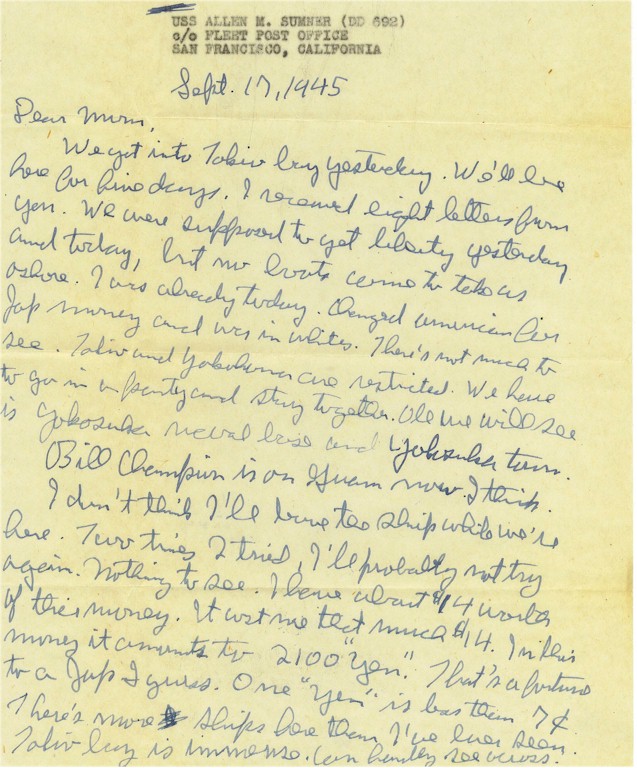 USS ALLEN M. SUMNER (DD 692)
c/o FLEET POST OFFICE
SAN FRANCISCO, CALIFORNIA
Sept. 17, 1945
Dear Mum,
We got into Tokio bay yesterday. We'll be
here for five days. I received eight letters from
you. We were supposed to get liberty yesterday
and today, but no boats came to take us
ashore. I was already today. Changed american for
Jap money and was in whites. There's not much to
see. Tokio and Yokohama are restricted. We have
to go in a party and stay together. All we will see
is Yokosuka naval base and Yokosuka town.
Bill Champion is on Guam now I think.
I don't think I'll leave the ship while we're
here. Two times I tried, I'll probally not try
again. Nothing to see. I have about $14 worth
of their money. It cost me that much $14. In this
money it amounts to 2100 "yen". That's a fortune
to a Jap I guess. One "yen" is less than 7¢
There's more ships here than I've ever seen.
Tokio bay is immense. Can hardly see across.